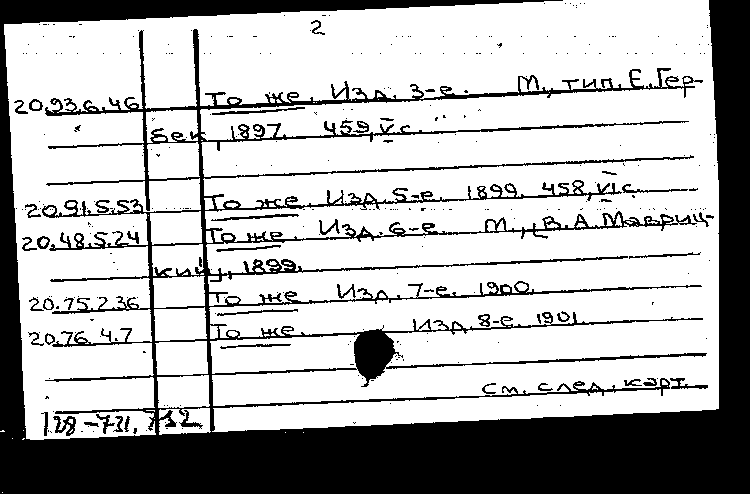 2
20.93.6.46 То же. Изд. 3-е. М., тип. Е. Гер-
бек, 1897. 459, V с.
20.91.5.53 То же. Изд. 5-е. 1899. 458, VI с.
20.48.5.24 То же. Изд. 6-е. М., В.А. Маврич-
кий, 1899.
20.75.2.36 То же. Изд. 7-е. 1900.
20.76.4.7 То же. Изд. 8-е. 1901.
см. след. карт.
128-731, 732